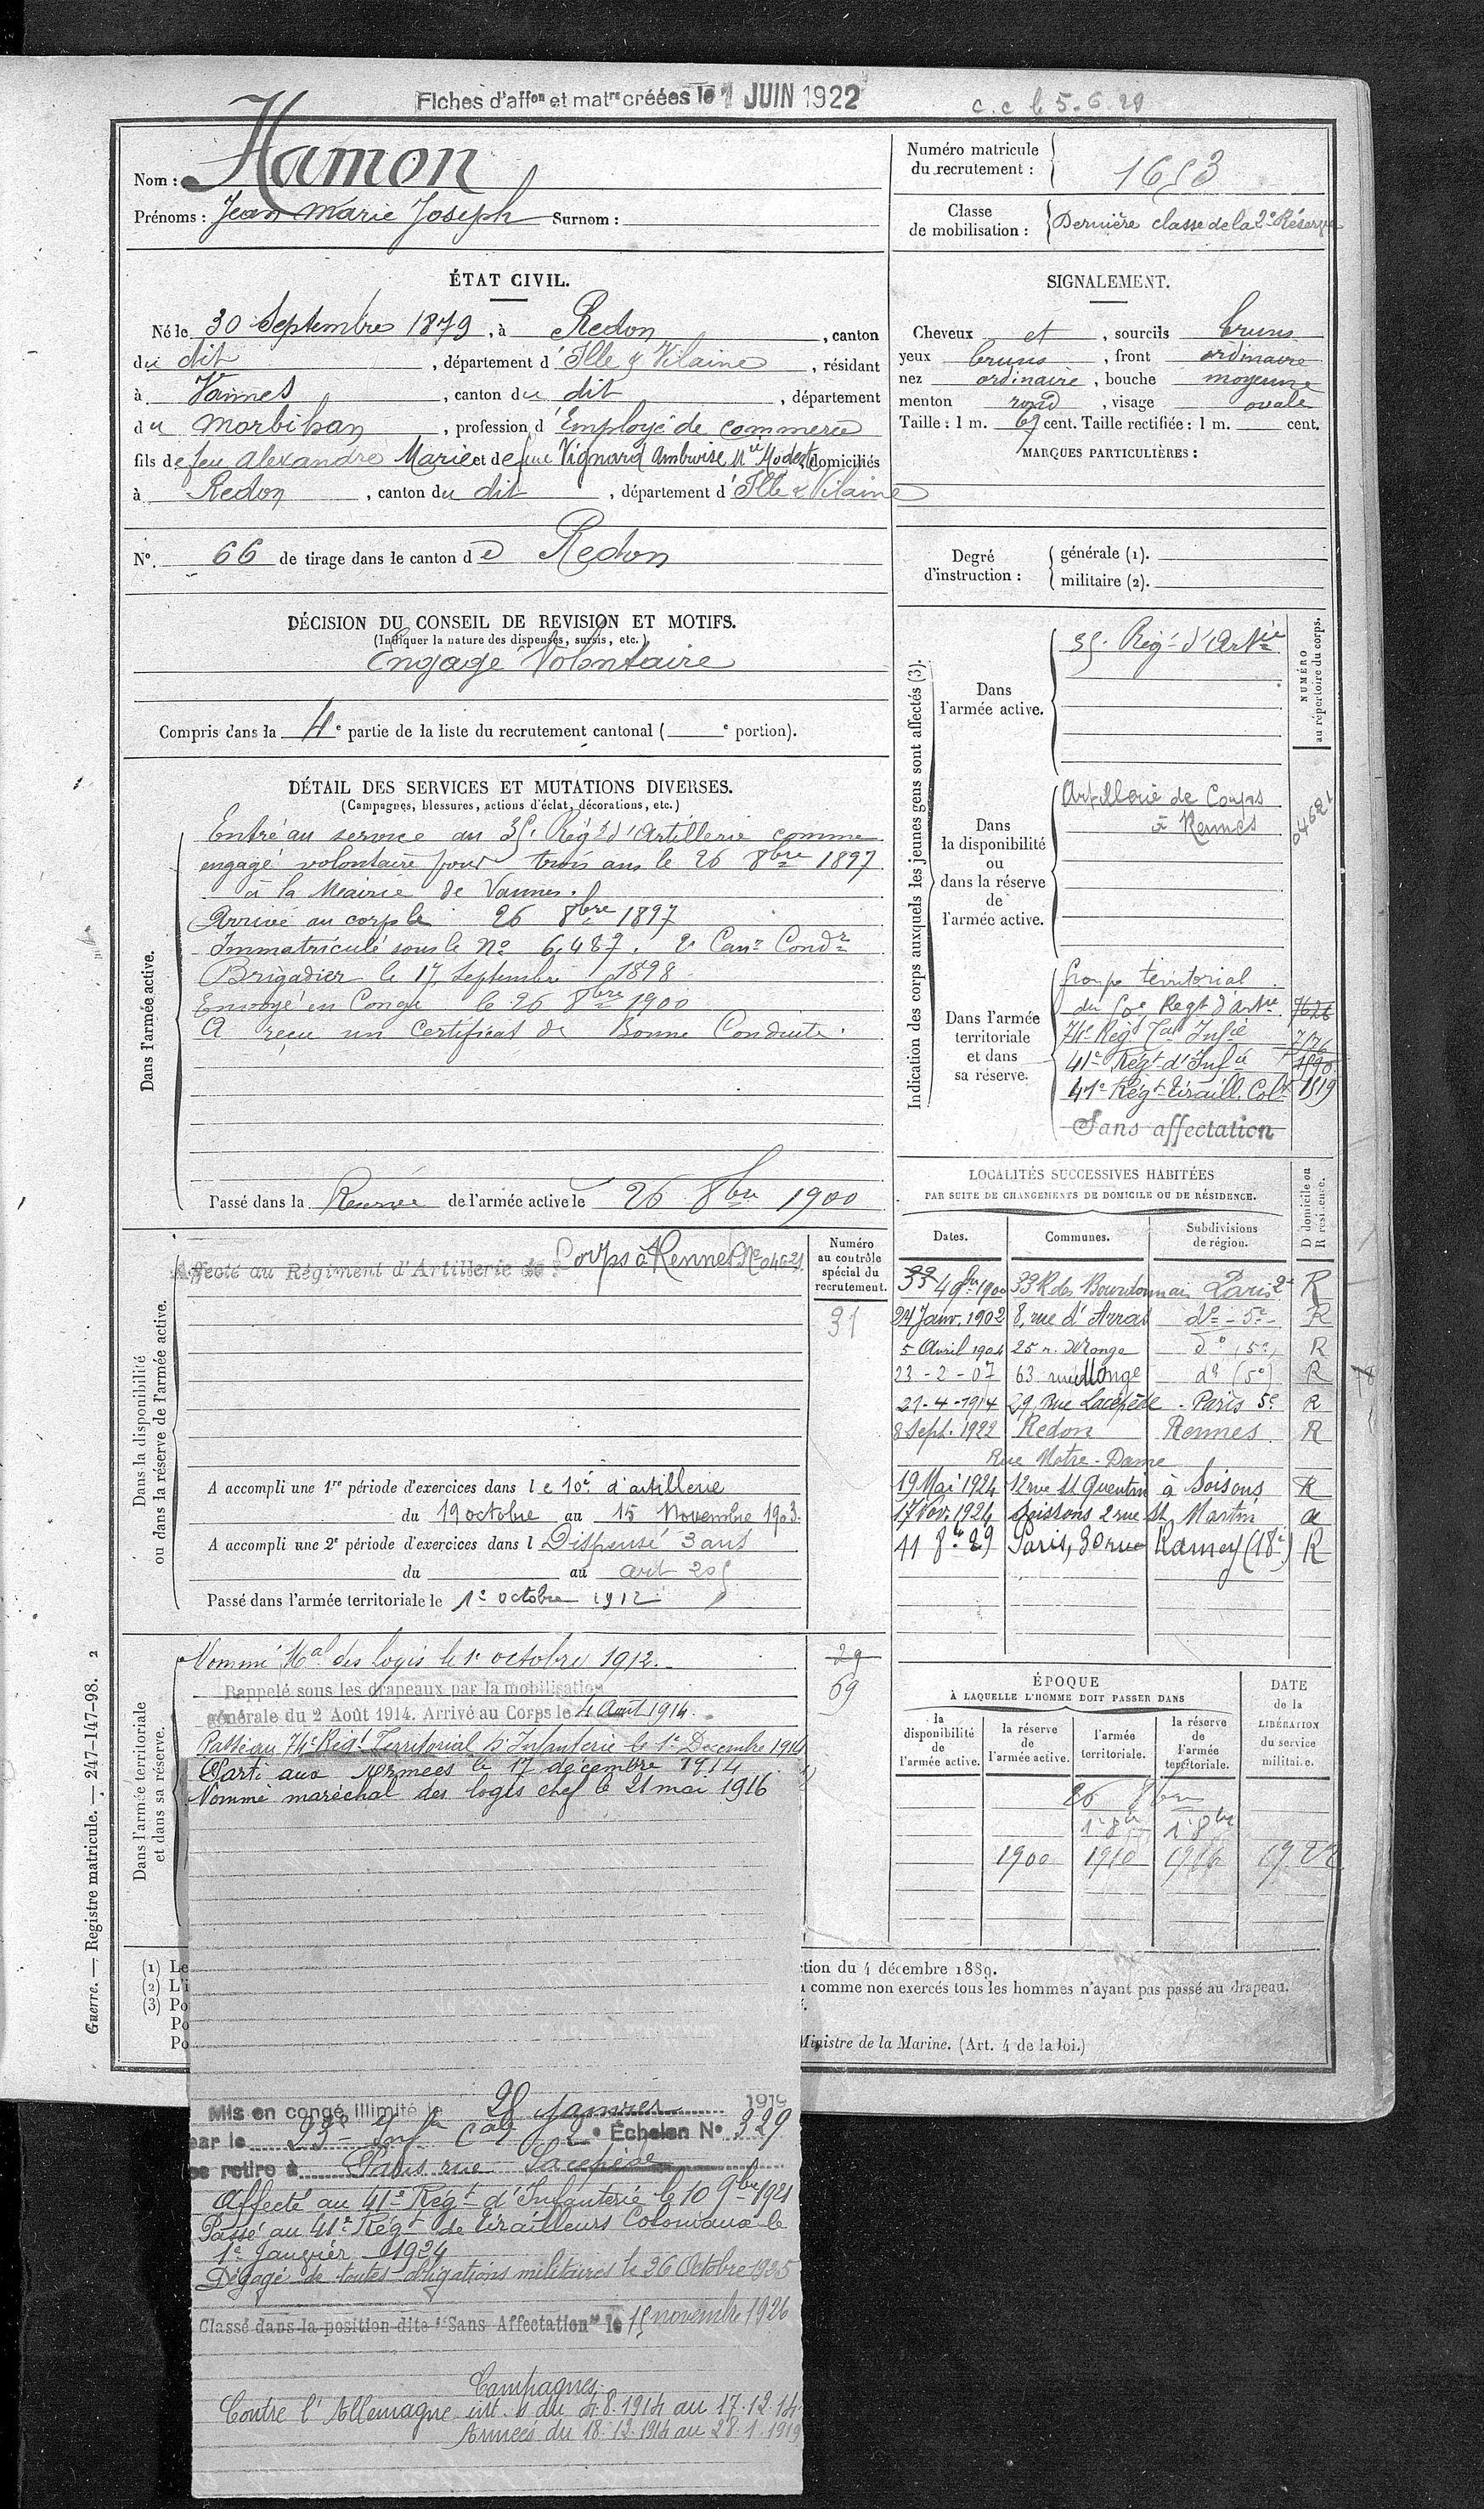 Fiches d'aff^on et mat^re créées le 1 JUIN 1922
c.c le 5.6.29
Nom : Hamon
Prénoms : Jean Marie Joseph Surnom :
Numéro matricule du recrutement : 1653
Classe de mobilisation : Dernière classe de la 2e Réserve
ÉTAT CIVIL.
Né le 30 Septembre 1879, à Redon, canton
du dit, département d'Ille & Vilaine, résidant
à Vannes, canton du dit, département
du Morbihan, profession d'Employé de commerce
fils de feu Alexandre Marie et de feue Vignard Ambroise M^ie Modeste domiciliés
à Redon, canton du dit, département d'Ille & Vilaine
N° 66 de tirage dans le canton de Redon
SIGNALEMENT.
Cheveux et, sourcils bruns
yeux bruns, front ordinaire
nez ordinaire, bouche moyenne
menton rond, visage ovale
Taille : 1 m. 67 cent. Taille rectifiée : 1 m. cent.
MARQUES PARTICULIÈRES :
Degré d'instruction : générale (1).
militaire (2).
DÉCISION DU CONSEIL DE REVISION ET MOTIFS.
(Indiquer la nature des dispenses, sursis, etc.)
Engagé Volontaire
Compris dans la 4e partie de la liste du recrutement cantonal ( e portion).
DÉTAIL DES SERVICES ET MUTATIONS DIVERSES.
(Campagnes, blessures, actions d'éclat, décorations, etc.)
Dans l'armée active.
Entré au service au 35e Régt d'Artillerie comme
engagé volontaire pour trois ans le 26 8bre 1897
à la Mairie de Vannes.
Arrivé au corps le 26 8bre 1897
Immatriculé sous le N° 6,487. 2e Can^r Cond^r
Brigadier le 17 Septembre 1898
Envoyé en Congé le 26 8bre 1900
A reçu un Certificat de Bonne Conduite.
Passé dans la Réserve de l'armée active le 26 8bre 1900
Indication des corps auxquels les jeunes gens sont affectés (3).
NUMÉRO au répertoire du corps.
Dans l'armée active.
35e Régt d'Art^ie
Dans la disponibilité ou dans la réserve de l'armée active.
Artillerie de Corps
à Rennes
04621
Dans l'armée territoriale et dans sa réserve.
Groupe territorial
du 50e Regt d'Art^ie 7626
74e Régt T^al Inf^ie 7176
41e Régt d'Inf^ie 1590
41e Régt Tiraill. Col^x 1519
Sans affectation
Dans la disponibilité ou dans la réserve de l'armée active.
Numéro au contrôle spécial du recrutement.
Affecté au Régiment d'Artillerie de Corps à Rennes N° 04621
31
A accompli une 1re période d'exercices dans le 10e d'artillerie
du 19 octobre au 15 Novembre 1903.
A accompli une 2e période d'exercices dans l Dispensé 3 ans
du au art 205
Passé dans l'armée territoriale le 1er octobre 1912
LOCALITÉS SUCCESSIVES HABITÉES
PAR SUITE DE CHANGEMENTS DE DOMICILE OU DE RÉSIDENCE.
Dates. Communes. Subdivisions de région. D domicile ou R résidence.
4 9bre 1900 33 R des Bourdonnais Paris 2e R
24 Janv. 1902 8, rue d'Arras d° - 5e - R
5 Avril 1904 25 r. Monge d° (5e) R
23-2-07 63 rue Monge d° (5e) R
21-4-1914 29, Rue Lacépède Paris 5e R
8 Sept. 1922 Redon Rennes R
Rue Notre-Dame
19 Mai 1924 12 rue St Quentin à Soissons R
17 Nov. 1924 Soissons 2 rue St Martin
11 8re 29 Paris, 30 rue Ramey (18e) R
Dans l'armée territoriale et dans sa réserve.
Nommé M^al des Logis le 1er octobre 1912.
29
Rappelé sous les drapeaux par la mobilisation
69
générale du 2 Août 1914. Arrivé au Corps le 4 Août 1914.
Passé au 74e Régt Territorial d'Infanterie le 1er Décembre 1914
Parti aux Armées le 17 décembre 1914
Nommé maréchal des logis chef le 21 mai 1916
ÉPOQUE
À LAQUELLE L'HOMME DOIT PASSER DANS
la disponibilité de l'armée active. la réserve de l'armée active. l'armée territoriale. la réserve de l'armée territoriale.
DATE de la LIBÉRATION du service militaire.
26 8bre
1er 8bre 1er 8bre
1900 1910 1916 19.22
Guerre. — Registre matricule. — 247-147-98. 2
(1) Le
(2) L'i
(3) Po
Po
Po
ction du 4 décembre 1889.
comme non exercés tous les hommes n'ayant pas passé au drapeau.
Ministre de la Marine. (Art. 4 de la loi.)
Mis en congé illimité le 28 janvier 1919
par le 23e Inf^ie C^ale 2e Échelon N° 329
se retire à Paris rue Lacépède
Affecté au 41e Régt d'Infanterie le 10 9bre 1921
Passé au 41e Régt de Tirailleurs Coloniaux le
1er Janvier 1924
Dégagé de toutes obligations militaires le 26 Octobre 1925
Classé dans la position dite "Sans Affectation" le 15 novembre 1926
Campagnes
Contre l'Allemagne int. r du 4.8.1914 au 17.12.14
Armées du 18.12.1914 au 28.1.1919